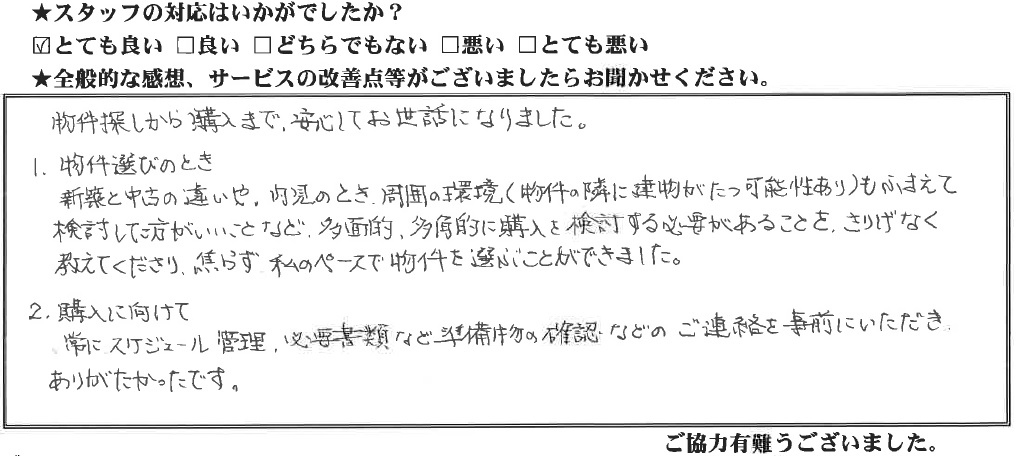 ★スタッフの対応はいかがでしたか？
☑とても良い □良い □どちらでもない □悪い □とても悪い
★全般的な感想、サービスの改善点等がございましたらお聞かせください。
物件探しから購入まで、安心してお世話になりました。
1. 物件選びのとき
新築と中古の違いや、内見のとき、周囲の環境(物件の隣に建物がたつ可能性あり)もふまえて
検討した方がいいことなど、多面的、多角的に購入を検討する必要があることを、さりげなく
教えてくださり、焦らず、私のペースで物件を選ぶことができました。
2. 購入に向けて
常にスケジュール管理、必要書類など準備物の確認などのご連絡を事前にいただき、
ありがたかったです。
ご協力有難うございました。